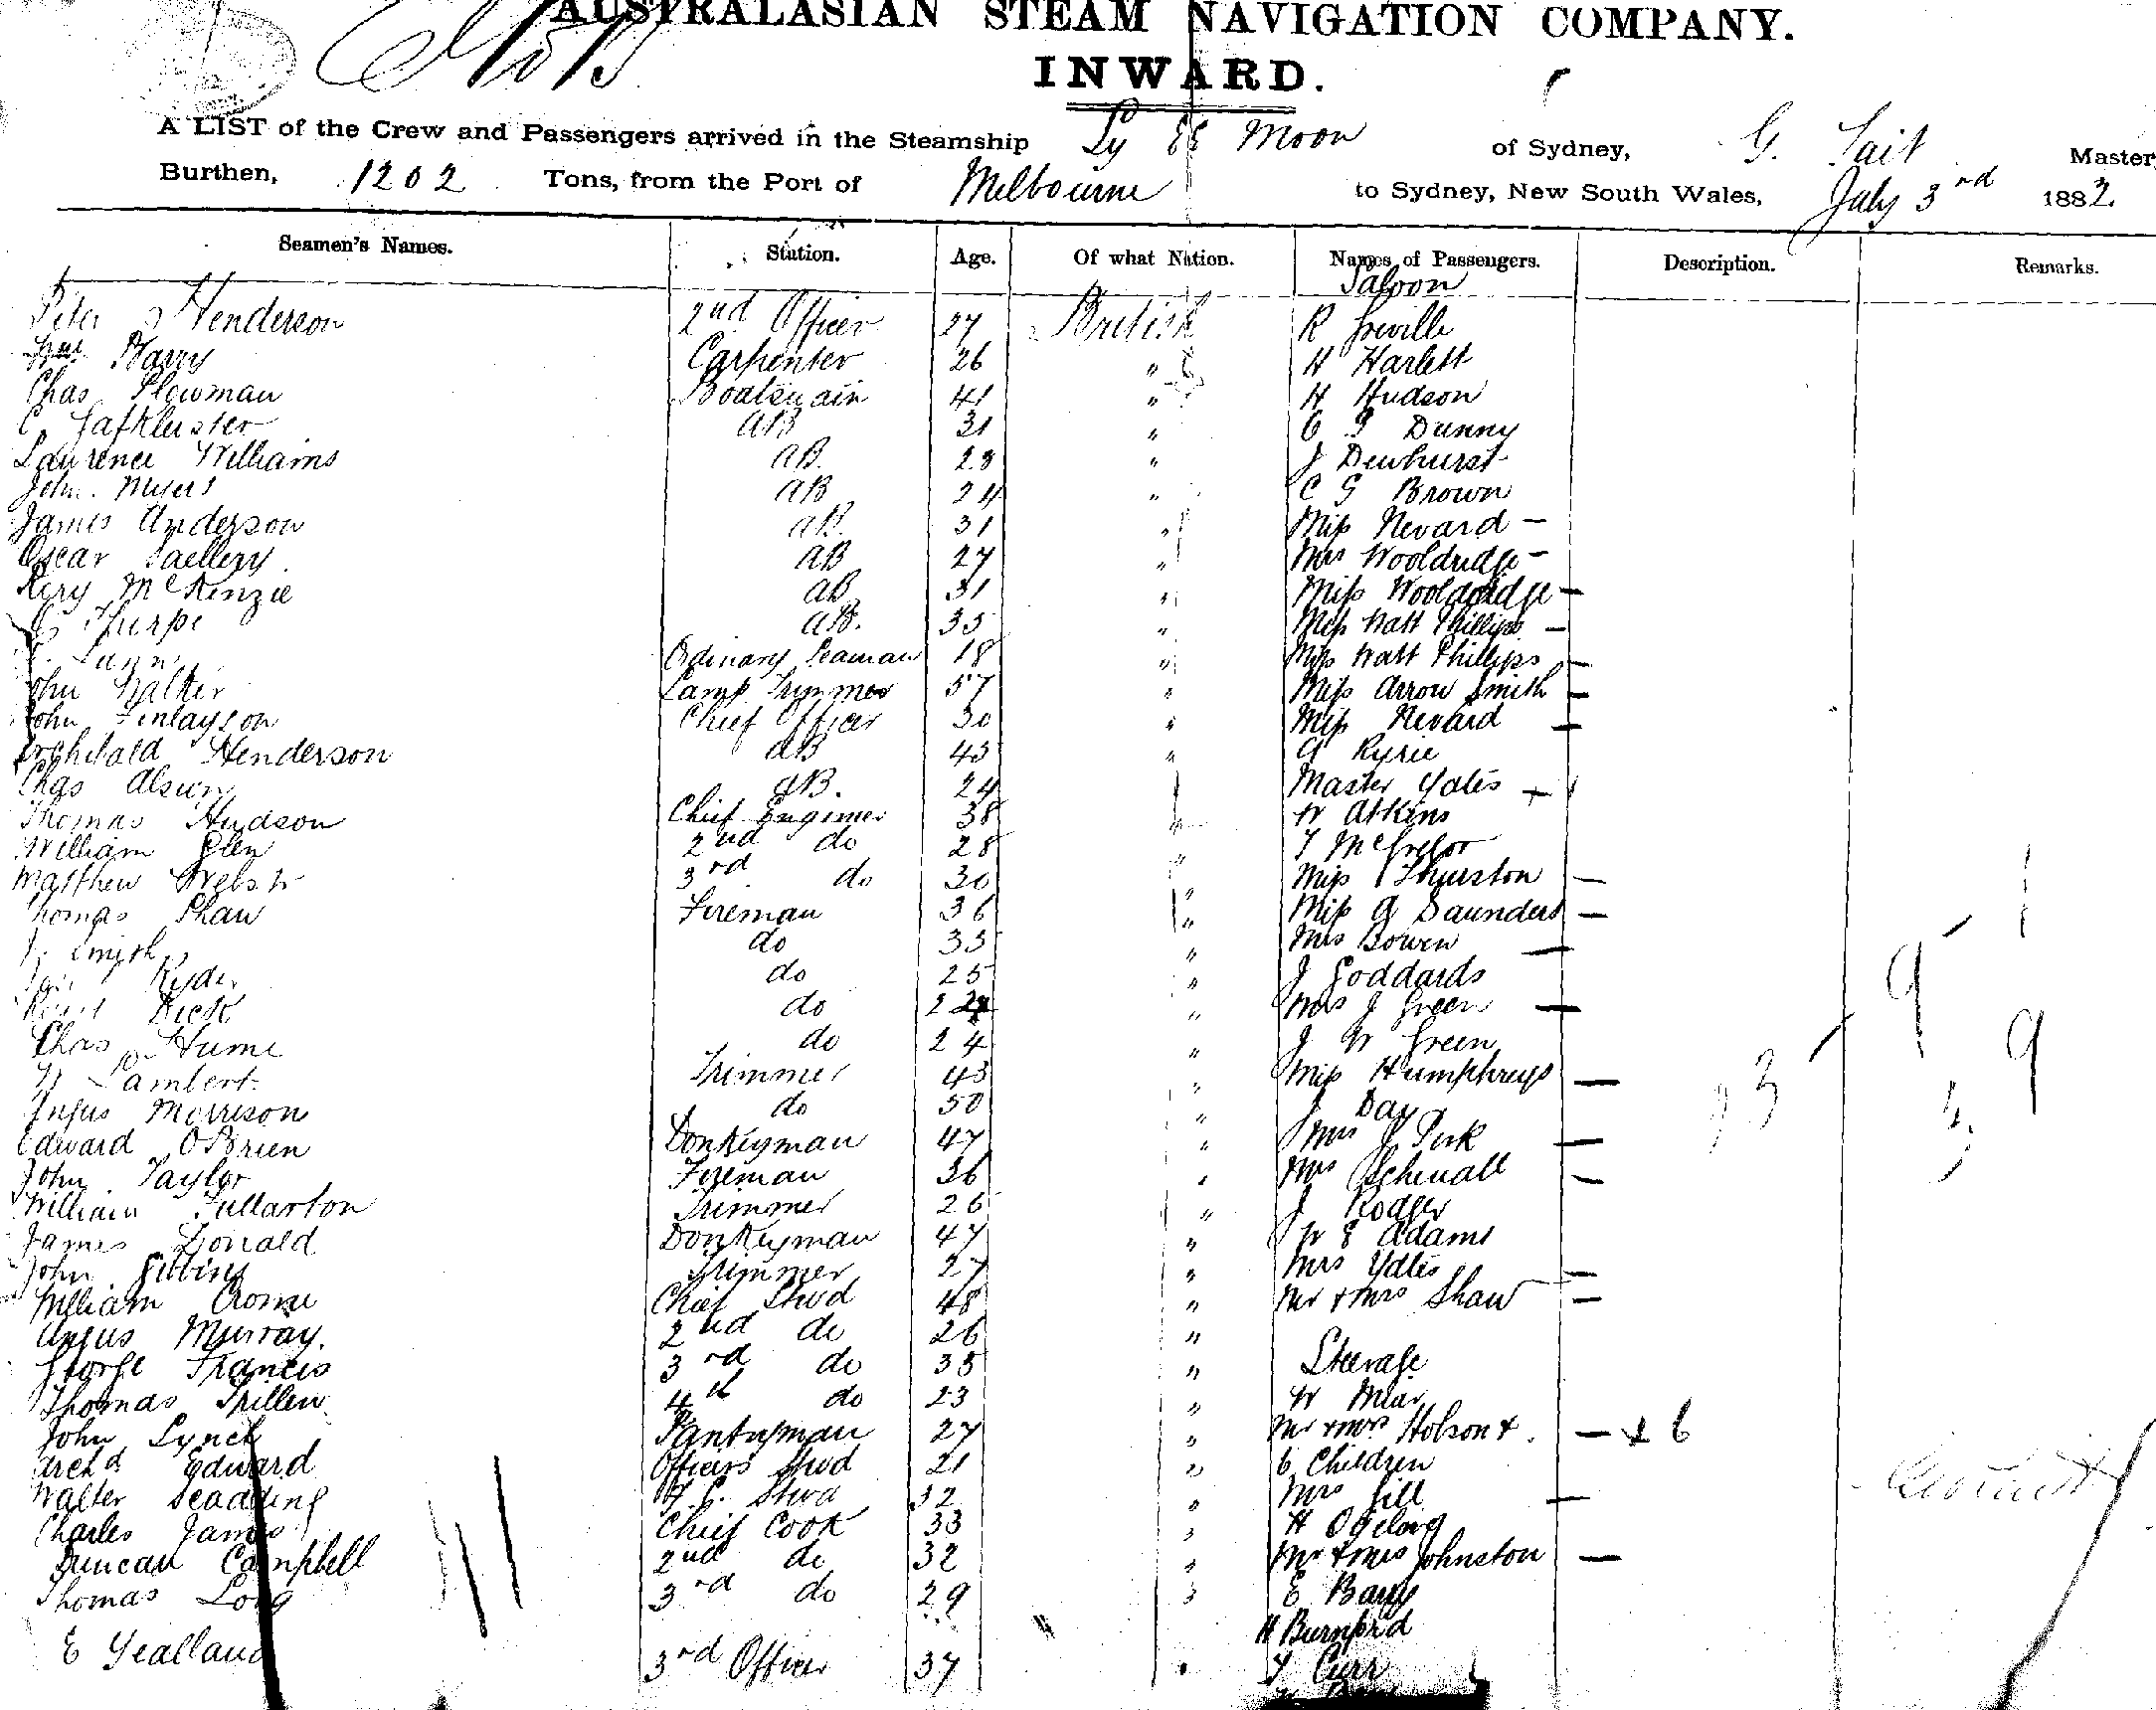 AUSTRALASIAN STEAM NAVIGATION COMPANY.
INWARD.
A LIST of the Crew and Passengers arrived in the Steamship Ly Ee Moon of Sydney, G. Tait Master
Burthen, 1202 Tons, from the Port of Melbourne to Sydney, New South Wales, July 3rd 1882
Seamen's Names. Station. Age. Of what Nation. Names of Passengers. Description. Remarks.
Saloon
Peter Henderson 2nd Officer 27 British R Greville
Wm Barry Carpenter 26 " H Harlett
Chas Plowman Boatswain 41 " H Hudson
C. AB 31 " Dunny
Laurence Williams AB. 23 " J Dewhurst
John Myers AB 24 " C G Brown
James Anderson AB. 31 " Miss Nevard —
Oscar AB 27 " Mrs Wooldridge —
McKenzie AB 31 " Miss Wooldridge —
Thurpe AB. 35 " Miss Watt Phillips —
Ordinary Seaman 18 " Miss Watt Phillips —
John Walker Lamp Trimmer 57 " Miss Arrow Smith —
John Finlayson Chief Officer 30 " Miss Nevard —
Archibald Henderson AB 45 " Ryrie
Chas AB. 24 Master Yates
Thomas Hudson Chief Engineer 38 " W Atkins
William Glen 2nd do 28 " T McGregor
Matthew Webster 3rd do 30 " Miss Thurston —
Thomas Shaw Fireman 36 " Miss A Saunders —
Smith do 35 " Mrs Bowen —
Ryder do 25 " J Goddards
Dick do " Mrs J Green —
Chas Hume do 24 " J W Green
Lambert Trimmer 43 " Miss Humphreys —
Angus Morrison do 50 " J Day
Edward OBrien Donkeyman 47 " Mrs J Perk —
John Taylor Fireman 36 " Mrs —
William Fullarton Trimmer 26 " J Rodger
James Donald Donkeyman 47 " W E Adams
John Gibbins Trimmer 27 " Mrs Yates —
William Crome Chief Stwd 48 " Mr & Mrs Shaw —
Angus Murray. 2nd do 26 "
George Francis 3rd do 35 " Steerage
Thomas 4th do 23 " W
John Lynch Pantryman 27 " Mr & Mrs Hobson & — + 6
Archd Edward Officers Stwd 21 " 6 Children
Walter Scadding Stwd 32 " Mrs Gill —
Charles James Chief Cook 33 " H
Duncan Campbell 2nd do 32 " Mr & Mrs Johnston —
Thomas Long 3rd do 29 " E Barry
H Burnford
E Yealland 3rd Officer 37 " Curr